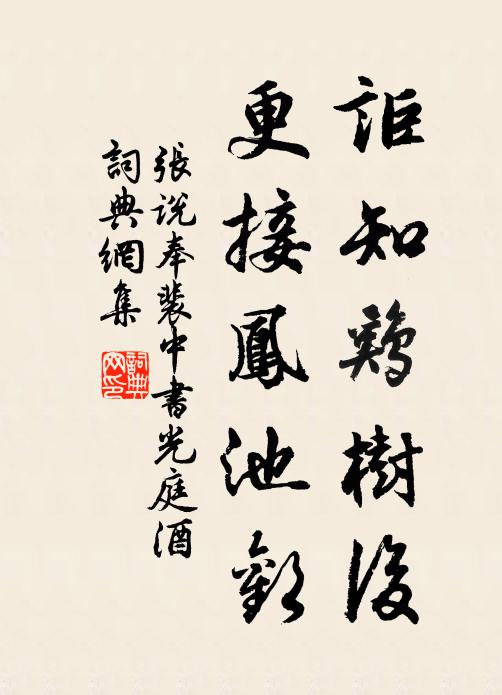 詎知鷄樹後
更接鳳池歡
張説奉裴中書光庭酒
詞典網集
詞典网印